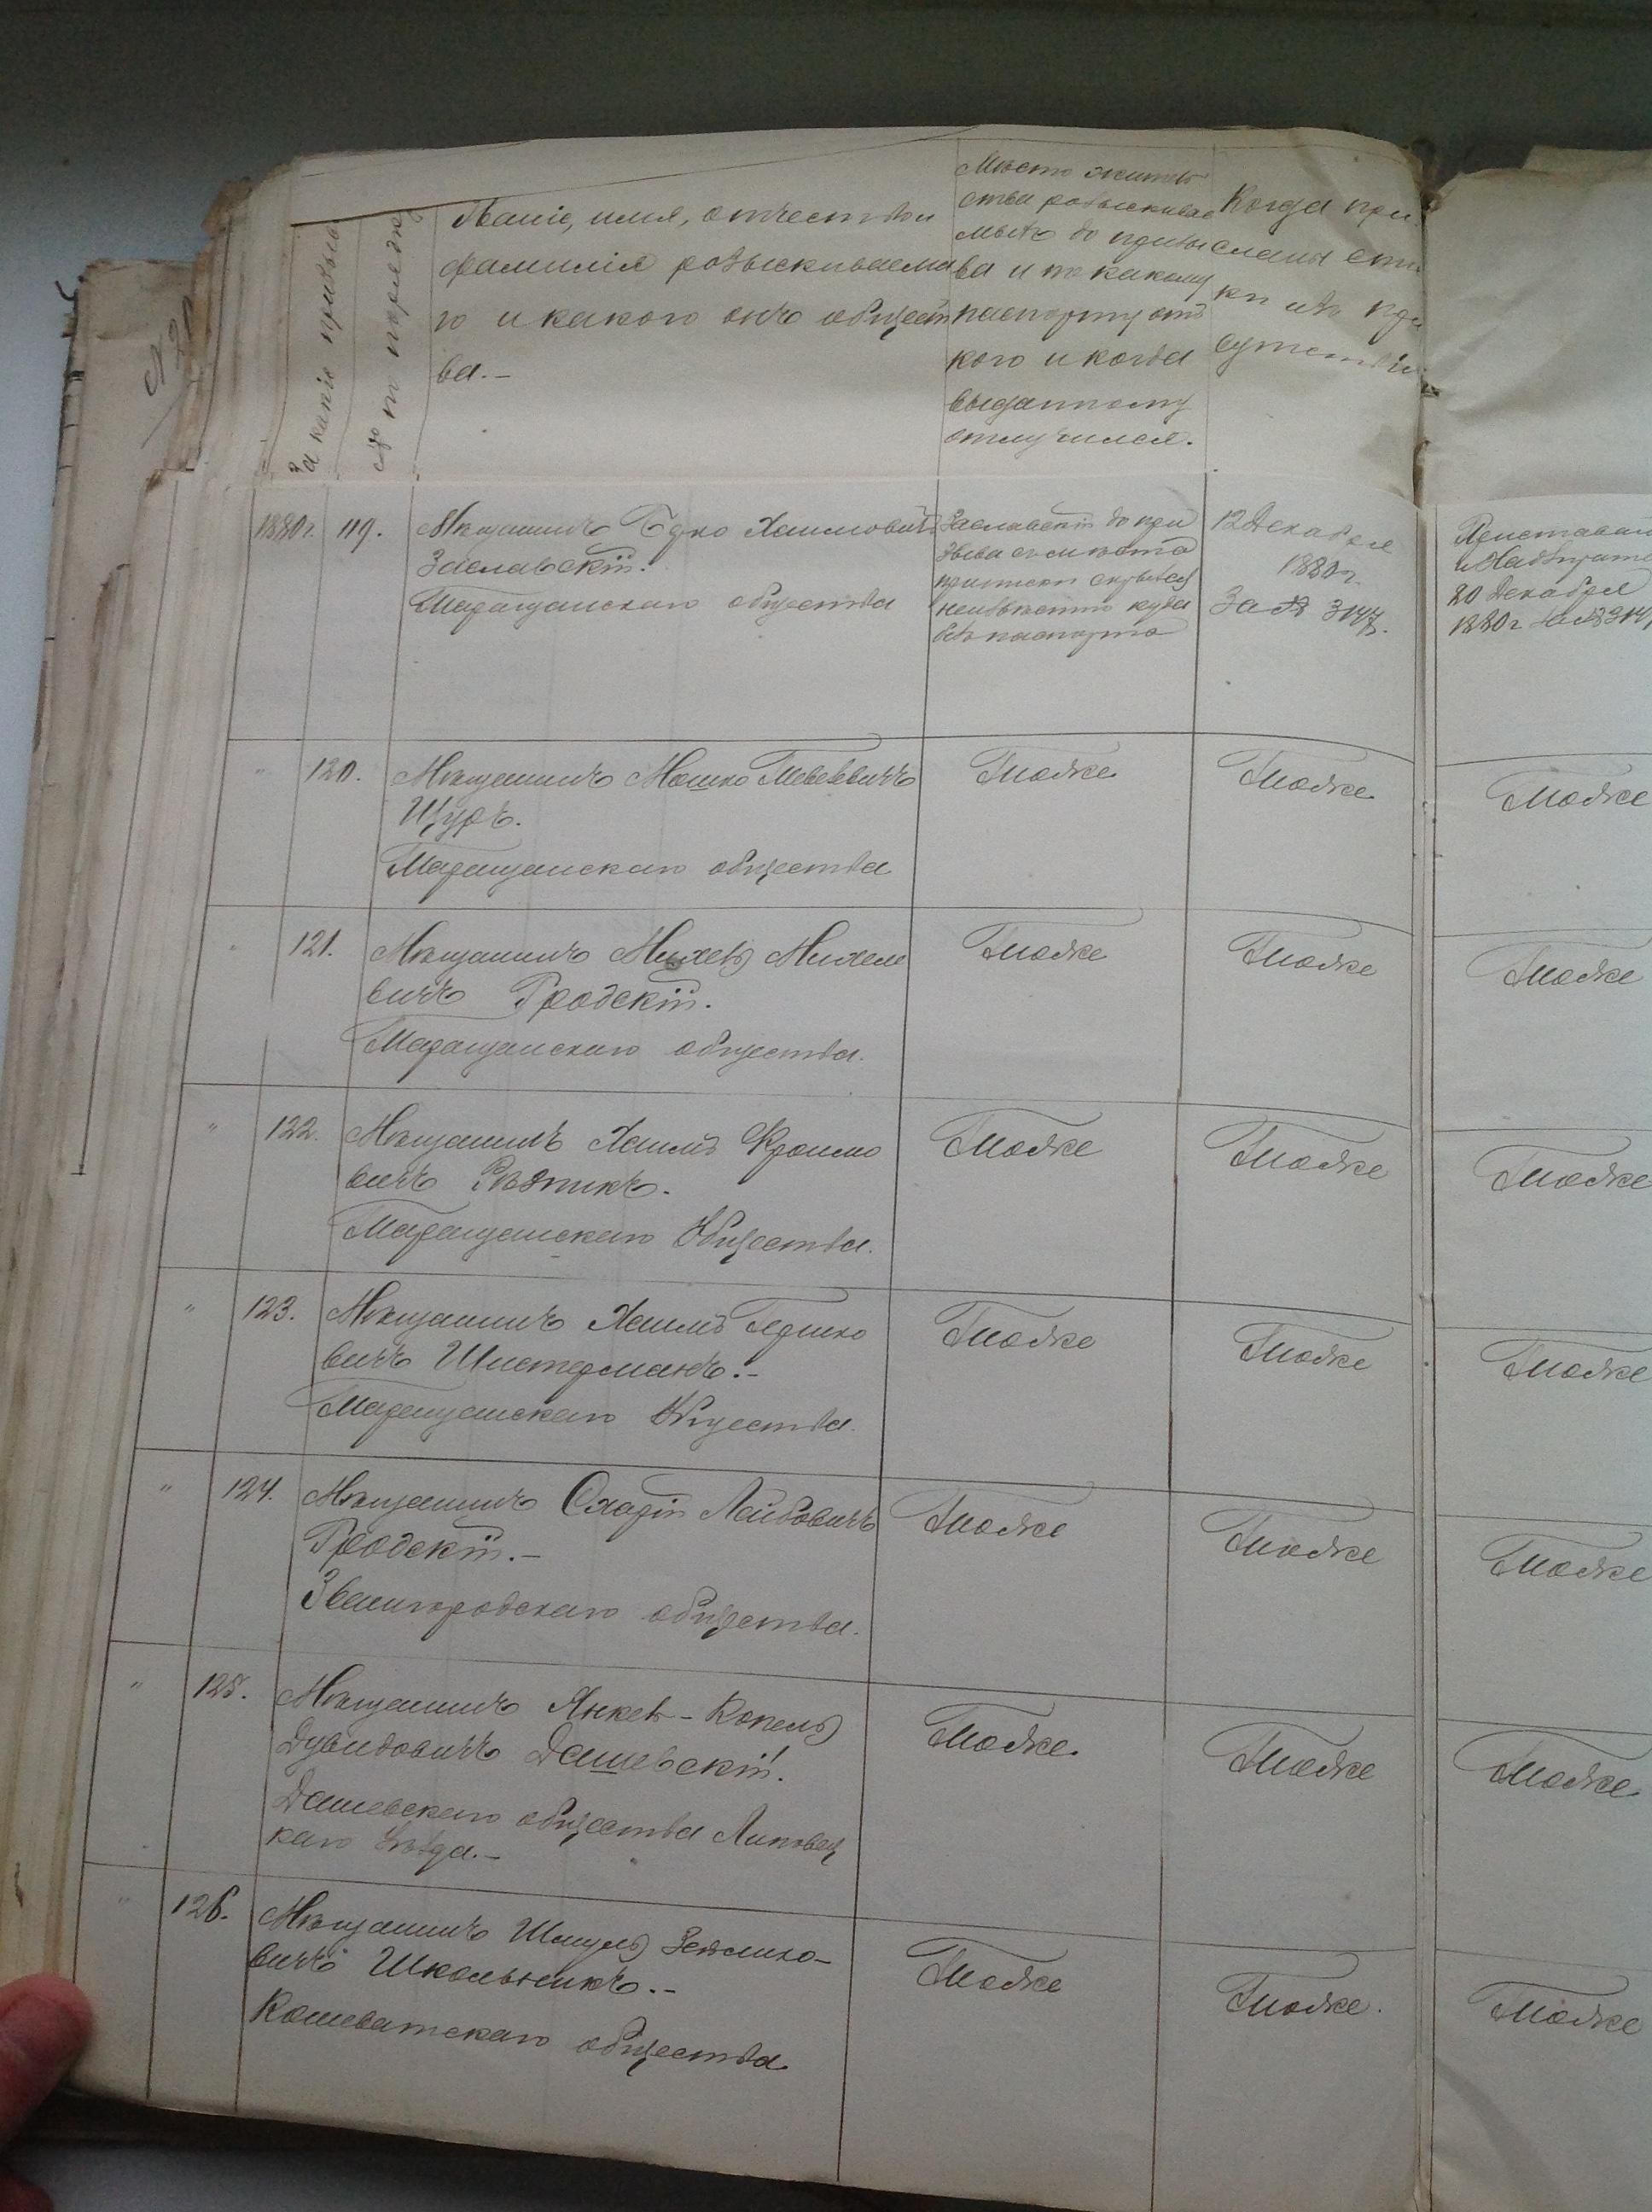 За какіе призывы
№ по порядку
Званіе, имя, отчество и
фамилія розыскиваема
го и какого онъ общест
ва.-
Мѣсто житель
ства розыскивае
мыхъ до призы
ва и по какому
паспорту отъ
кого и когда
выданному
отлучился.
Когда при
сланы спи
ки изъ при
сутствія
1880 г. 119. Мѣщанинъ Хаимовичъ
Заславскій.
Таращанскаго общества
Заславскій до при
зыва съ мѣста
приписки скрылся
неизвѣстно куда
безъ паспорта
12 Декабря
1880 г.
За №
Приставамъ
и Надзират
20 Декабря
1880 г за №
" 120. Мѣщанинъ Мошко
Щуръ.
Таращанскаго общества
Тоже
Тоже
Тоже
" 121. Мѣщанинъ Михель Михеле
вичъ Гродскій.
Таращанскаго общества.
Тоже
Тоже
Тоже
" 122. Мѣщанинъ Хаимъ Кроимо
вичъ Рѣзникъ.
Таращанскаго Общества.
Тоже
Тоже
Тоже
" 123. Мѣщанинъ Хаимъ Гершко
вичъ Шистерманъ.-
Таращанскаго Общества.
Тоже
Тоже
Тоже
" 124. Мѣщанинъ Лейбовичъ
Гродскій.-
Звенигородскаго общества.
Тоже
Тоже
Тоже
" 125. Мѣщанинъ Янкев-Копель
Дувидовичъ Дашевскій.
Дашевскаго общества Липовец
каго Уѣзда.-
Тоже.
Тоже
Тоже
" 126. Мѣщанинъ Шмуль Зейлико-
вичъ Школьникъ.-
Кошеватскаго общества
Тоже
Тоже.
Тоже